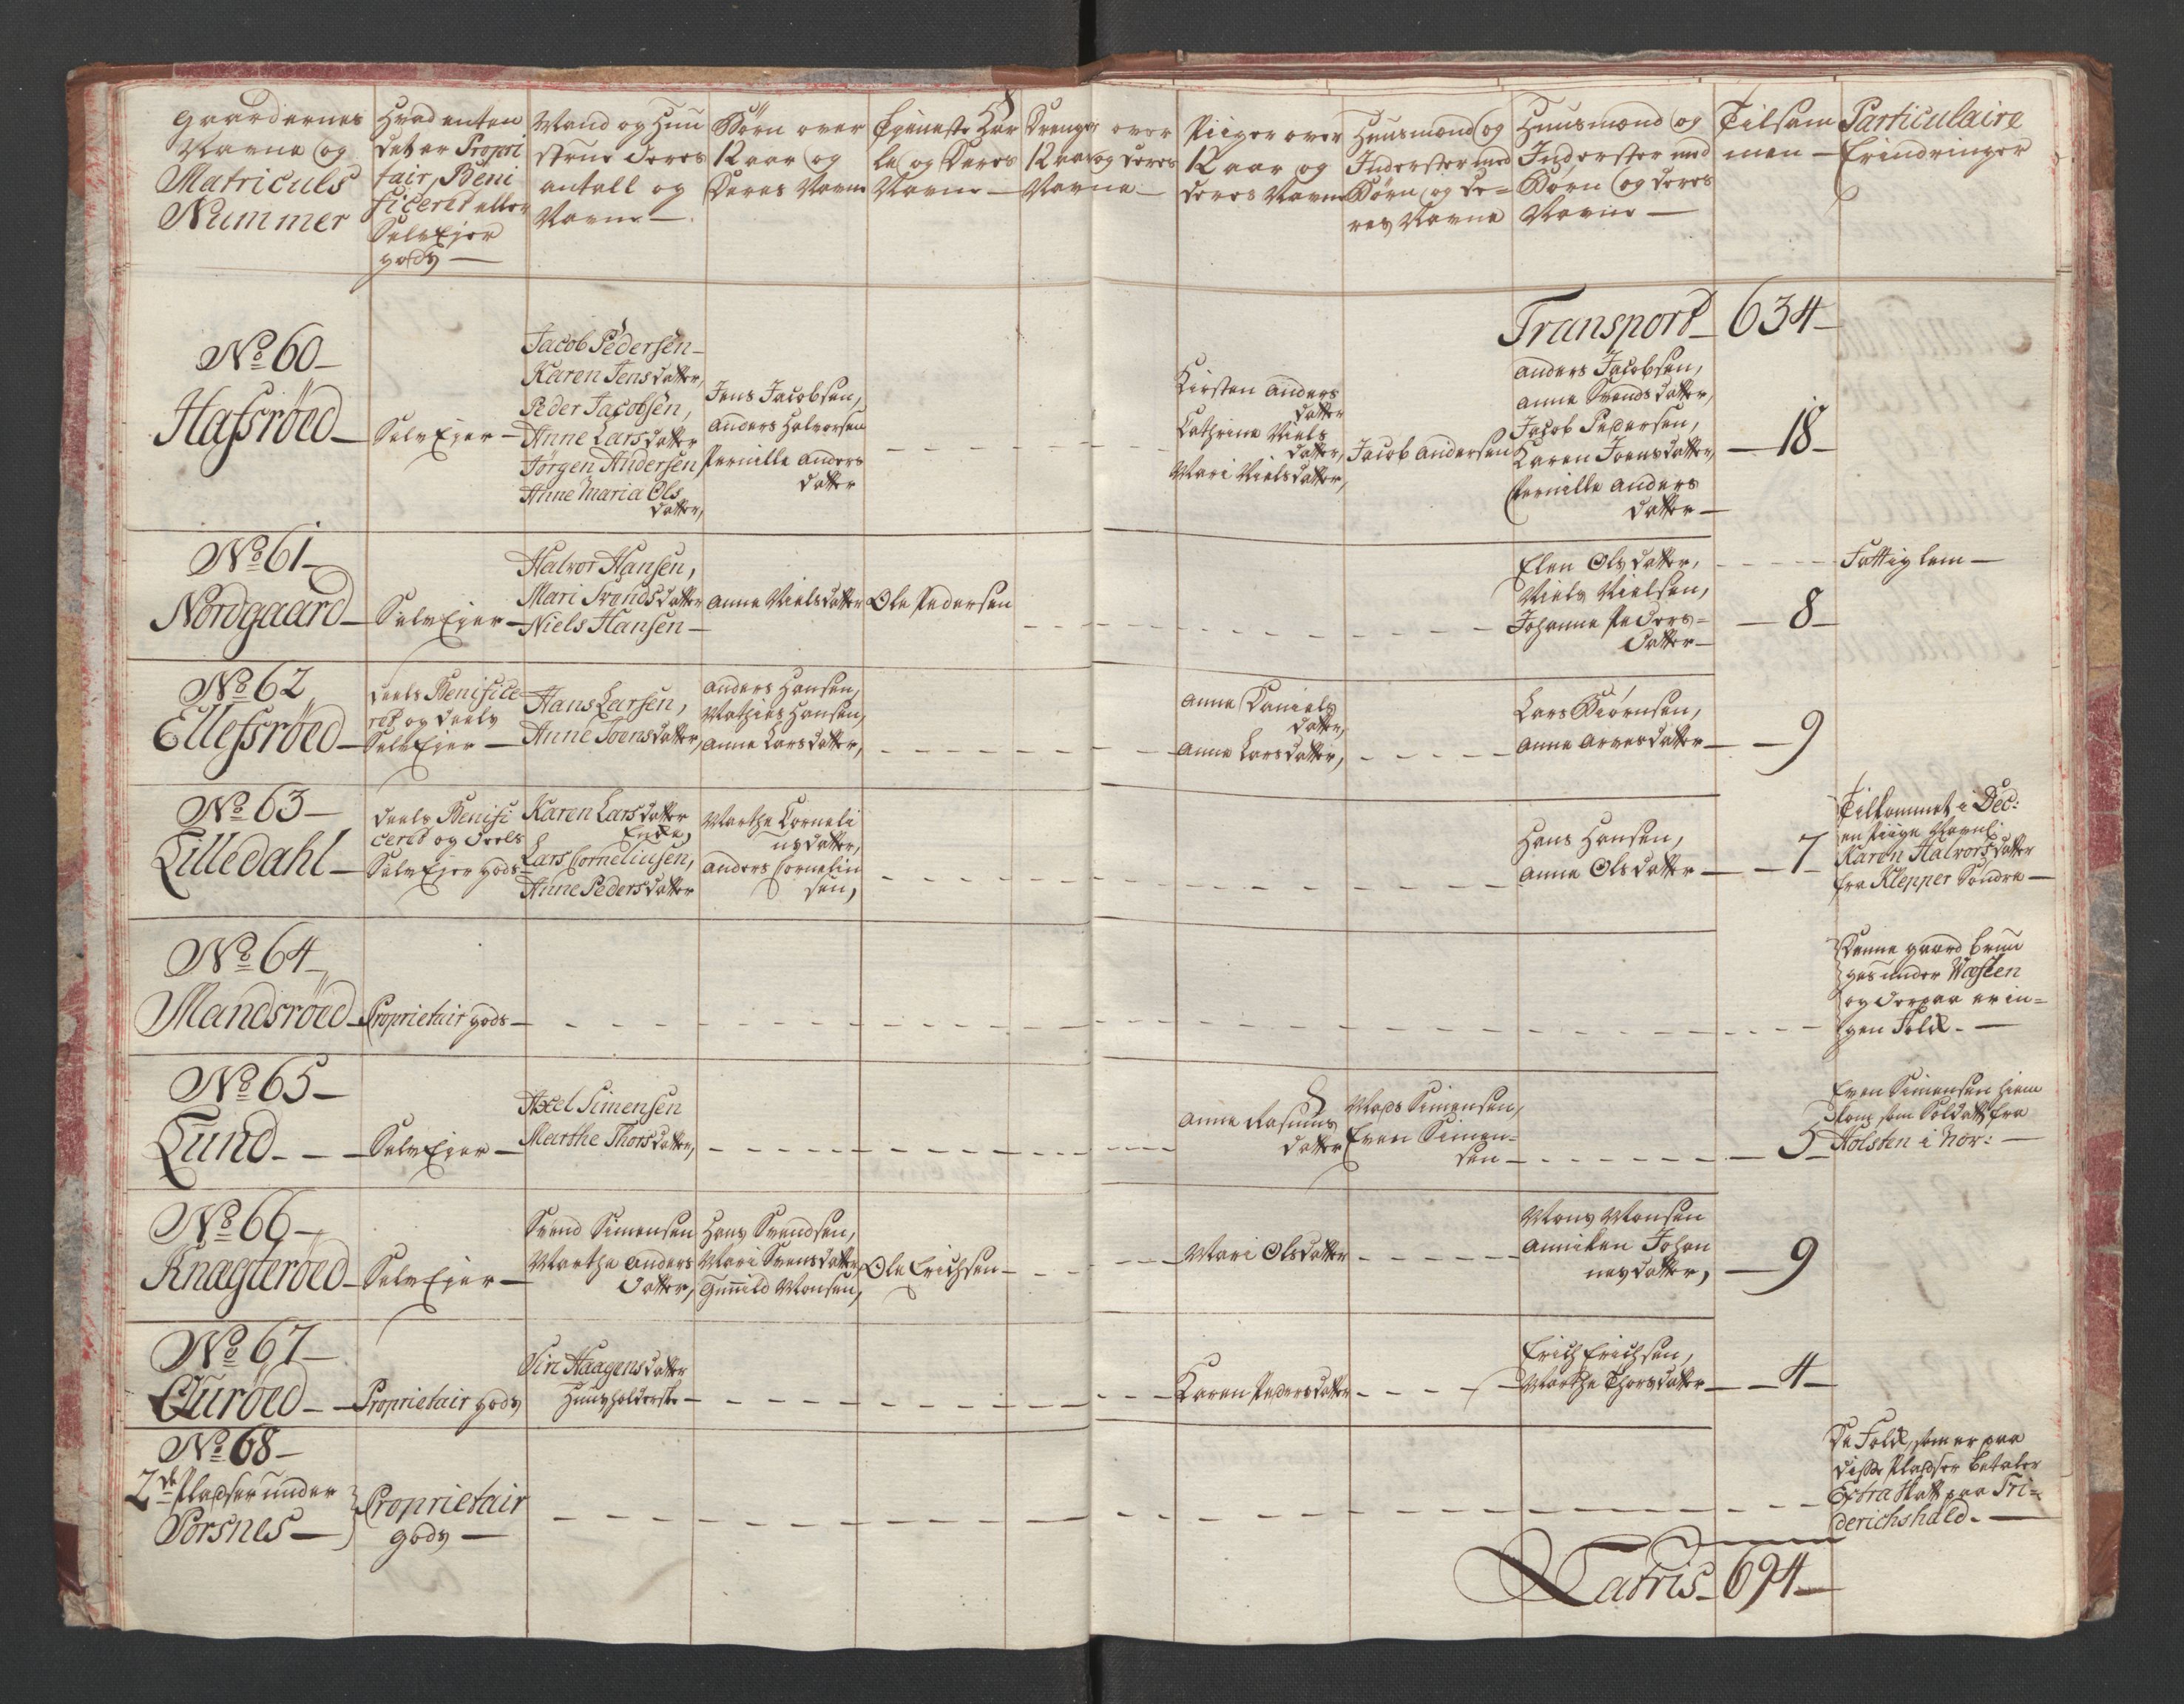 Gaardernes
Navne og
Matriculs
Nummer
Hvad enten
det er Propri
tair, Beni
ficeret eller
SelvEjer
gods —
Mand og Huu
strue deres
antall og
Navne —
Børn over
12 aar og
Deres Navne
Tjeneste Kar
le og Deres
Navne —
Drenge over
12 aar og deres
Navne —
Piiger over
12 aar og
deres Navne
Huusmænd og
Inderster med
Børn og de=
res Navne
Huusmænd og
Inderster med
Børn og deres
Navne —
Tilsam
men —
Particulaire
Erindringer
Transport — 634 —
No 60 —
Hafsröed —
SelvEjer —
Jacob Pedersen —
Karen Jensdatter,
Peder Jacobsen,
Anne Larsdatter
Jørgen Andersen,
Anne Maria Ols
datter,
Jens Jacobsen,
Anders Halvorsen
Pernille Anders
datter
Kirsten Anders
datter
Cathrine Niels
datter,
Mari Nielsdatter,
Jacob Andersen
Anders Jacobsen,
Anne Svendsdatter,
Jacob Pedersen,
Karen Joensdatter,
Pernille Anders
datter —
— 18 —
No 61 —
Nordgaard —
SelvEjer —
Halvor Hansen,
Mari Svendsdatter
Niels Hansen —
Anne Nielsdatter
Ole Pedersen
Elen Olsdatter,
Niels Nielsen,
Johanne Peders=
datter —
— 8 —
Fattig lem —
No 62
Ellefsröed —
deels Benifice
ret og deels
SelvEjer —
Hans Larsen,
Anne Joensdatter,
Anders Hansen,
Mathies Hansen,
Anne Larsdatter,
Anne Daniels
datter,
Anne Larsdatter,
Lars Biørnsen,
Anne Arnesdatter —
— 9
No 63 —
Lilledahl —
deels Benifi
ceret og deels
SelvEjer gods —
Karen Larsdatter
Enke,
Lars Corneliusen,
Anne Pedersdatter
Marthe Corneli
usdatter,
Anders Corneliu
sen,
Hans Hansen,
Anne Olsdatter —
— 7 —
Tilkommet i Dec:
en Piige Navnl:
Karen Halvorsdatter
fra Klepper Søndre —
No 64 —
Mandsröed —
Proprietair gods —
Denne gaard brun
ges under Wæsten
og derpaa er in=
gen Folk. —
No 65 —
Lund — — —
SelvEjer —
Axel Simensen
Marthe Thorsdatter,
Anne Rasmus
datter
Mads Simensen,
Even Simen=
sen —
— 5 —
Even Simensen hiem
kom som Soldatt fra
Holsten i Nov: —
No 66 —
Knagteröed —
SelvEjer —
Svend Simensen
Marthe Anders
datter,
Hans Svendsen,
Mari Svensdatter,
Gunild Monsen,
Ole Erichsen —
Mari Olsdatter
Mons Monsen
Anniken Johan
nesdatter,
— 9
No 67 —
Ouröed — —
Proprietair gods
Siri Haagensdatter
Huusholderske —
Karen Pedersdatter
Erich Erichsen,
Marthe Thorsdatter —
— 4 —
No 68 —
2de Pladser under
Porsnes —
Proprietair
gods —
De Folk, som er paa
disse Pladser betaler
Extra Skatt paa Fri=
derichshald. —
Latris — 694 —